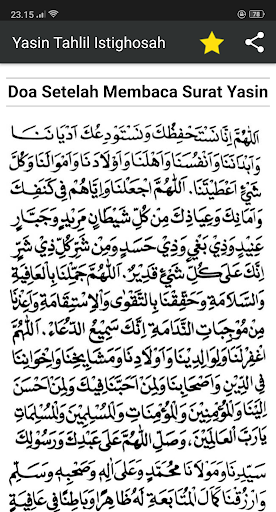 23.15
78
Yasin Tahlil Istighosah
Doa Setelah Membaca Surat Yasin
اَللّٰهُمَّ اِنَّا نَسْتَحْفِظُكَ وَنَسْتَوْدِعُكَ اَدْيَانَنَا
وَاَبْدَانَنَا وَاَنْفُسَنَا وَاَهْلَنَا وَاَوْلَادَنَا وَاَمْوَالَنَا وَكُلَّ
شَيْءٍ اَعْطَيْتَنَا. اَللّٰهُمَّ اجْعَلْنَا وَاِيَّاهُمْ فِيْ كَنَفِكَ
وَاَمَانِكَ وَعِيَاذِكَ مِنْ كُلِّ شَيْطَانٍ مَرِيْدٍ وَجَبَّارٍ
عَنِيْدٍ وَذِيْ بَغْيٍ وَذِيْ حَسَدٍ وَمِنْ شَرِّ كُلِّ ذِيْ شَرٍّ
اِنَّكَ عَلٰى كُلِّ شَيْءٍ قَدِيْرٌ. اَللّٰهُمَّ جَمِّلْنَا بِالْعَافِيَةِ
وَالسَّلَامَةِ وَحَقِّقْنَا بِالتَّقْوٰى وَالْاِسْتِقَامَةِ وَاَعِذْنَا
مِنْ مُوْجِبَاتِ النَّدَامَةِ اِنَّكَ سَمِيْعُ الدُّعَاءِ. اَللّٰهُمَّ
اغْفِرْ لَنَا وَلِوَالِدَيْنَا وَاَوْلَادِنَا وَمَشَايِخِنَا وَاِخْوَانِنَا
فِي الدِّيْنِ وَاَصْحَابِنَا وَلِمَنْ اَحَبَّنَا فِيْكَ وَلِمَنْ اَحْسَنَ
اِلَيْنَا وَلِلْمُؤْمِنِيْنَ وَالْمُؤْمِنَاتِ وَالْمُسْلِمِيْنَ وَالْمُسْلِمَاتِ
يَا رَبَّ الْعَالَمِيْنَ. وَصَلِّ اللّٰهُمَّ عَلٰى عَبْدِكَ وَرَسُوْلِكَ
سَيِّدِنَا وَمَوْلَانَا مُحَمَّدٍ وَعَلٰى اٰلِهِ وَصَحْبِهِ وَسَلِّمْ
وَارْزُقْنَا كَمَالَ الْمُتَابَعَةِ لَهُ ظَاهِرًا وَبَاطِنًا فِيْ عَافِيَةٍ